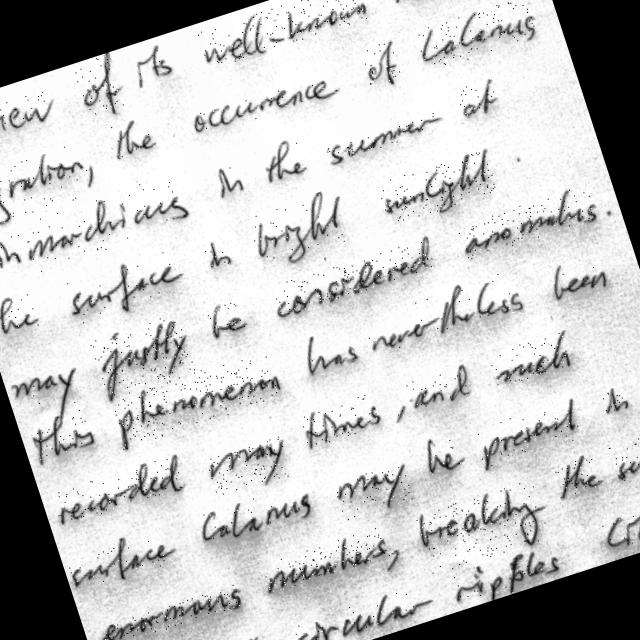 view of its well-known
migration, the occurrence of Calanus
finmarchicus in the summer at
the surface in bright sunlight
may justly be considered anomalous.
This phenomenon has nevertheless been
recorded many times, and such
surface Calanus may be present in
enormous numbers, breaking the
circular ripples